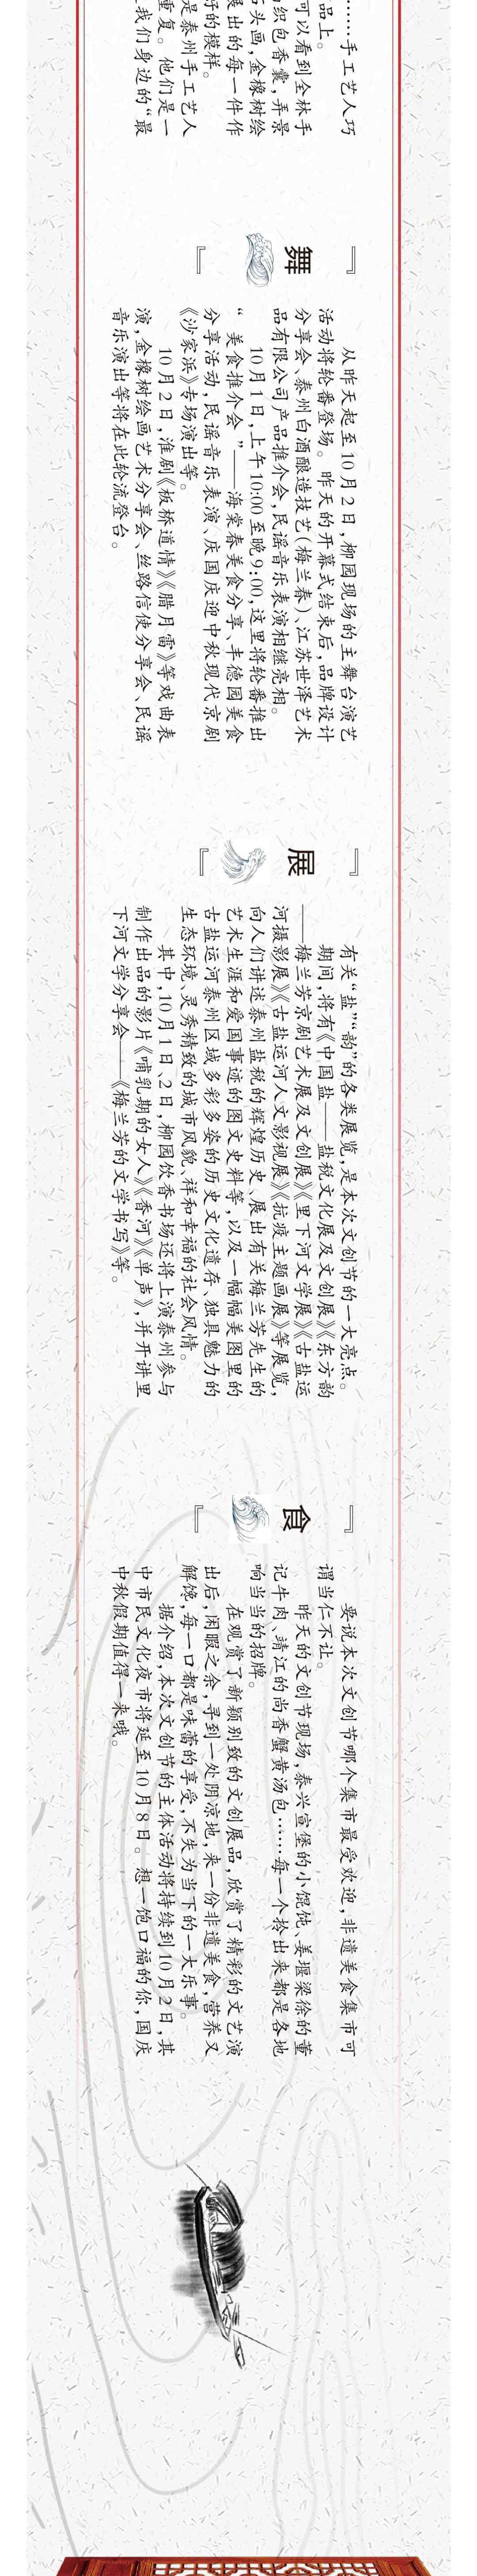 ……手工艺人巧
品上。
可以看到全林手
织包香囊，弄景
头画，金橡树绘
展出的每一件作
好的模样。
是泰州手工艺人
重复。他们是一
我们身边的“最
『舞』
从昨天起至10月2日，柳园现场的主舞台演艺
活动将轮番登场。昨天的开幕式结束后，品牌设计
分享会、泰州白酒酿造技艺（梅兰春）、江苏世泽艺术
品有限公司产品推介会，民谣音乐表演相继亮相。
10月1日，上午10:00至晚9:00，这里将轮番推出
“美食推介会”——海棠春美食分享、丰德园美食
分享活动，民谣音乐表演、庆国庆迎中秋现代京剧
《沙家浜》专场演出等。
10月2日，淮剧《板桥道情》《腊月雷》等戏曲表
演，金橡树绘画艺术分享会、丝路信使分享会、民谣
音乐演出等将在此轮流登台。
『展』
有关“盐”“韵”的各类展览，是本次文创节的一大亮点。
期间，将有《中国盐——盐税文化展及文创展》《东方韵
——梅兰芳京剧艺术展及文创展》《里下河文学展》《古盐运
河摄影展》《古盐运河人文影视展》《抗疫主题画展》等展览，
向人们讲述泰州盐税的辉煌历史、展出有关梅兰芳先生的
艺术生涯和爱国事迹的图文史料等，以及一幅幅美图里的
古盐运河泰州区域多彩多姿的历史文化遗存、独具魅力的
生态环境、灵秀精致的城市风貌、祥和幸福的社会风情。
其中，10月1日、2日，柳园饮香书场还将上演泰州参与
制作出品的影片《哺乳期的女人》《香河》《单声》，并开讲里
下河文学分享会——《梅兰芳的文学书写》等。
『食』
要说本次文创节哪个集市最受欢迎，非遗美食集市可
谓当仁不让。
昨天的文创节现场，泰兴宣堡的小馄饨、姜堰梁徐的董
记牛肉、靖江的尚香蟹黄汤包……每一个拎出来都是各地
响当当的招牌。
在观赏了新颖别致的文创展品，欣赏了精彩的文艺演
出后，闲暇之余，寻到一处阴凉地，来一份非遗美食，营养又
解馋，每一口都是味蕾的享受，不失为当下的一大乐事。
据介绍，本次文创节的主体活动将持续到10月2日，其
中市民文化夜市将延至10月8日。想一饱口福的你，国庆
中秋假期值得一来哦。